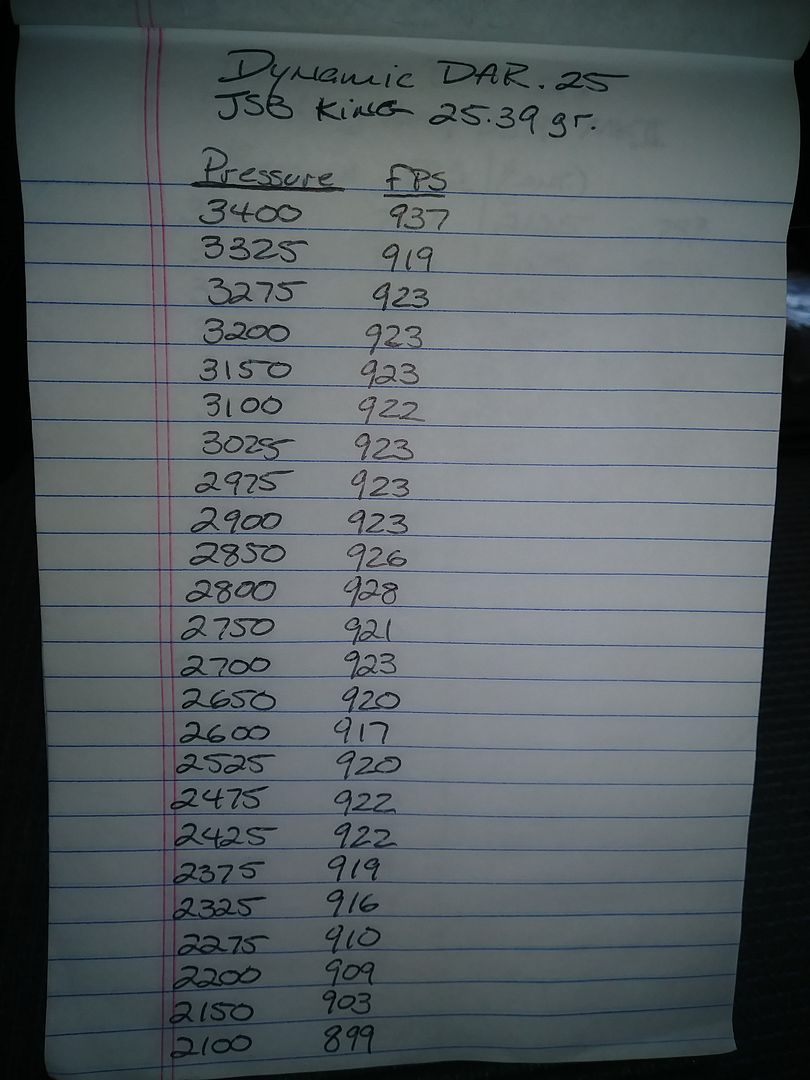 Dynamic DAR .25
JSB KING 25.39 gr.
Pressure FPS
3400 937
3325 919
3275 923
3200 923
3150 923
3100 922
3025 923
2975 923
2900 923
2850 926
2800 928
2750 921
2700 923
2650 920
2600 917
2525 920
2475 922
2425 922
2375 919
2325 916
2275 910
2200 909
2150 903
2100 899